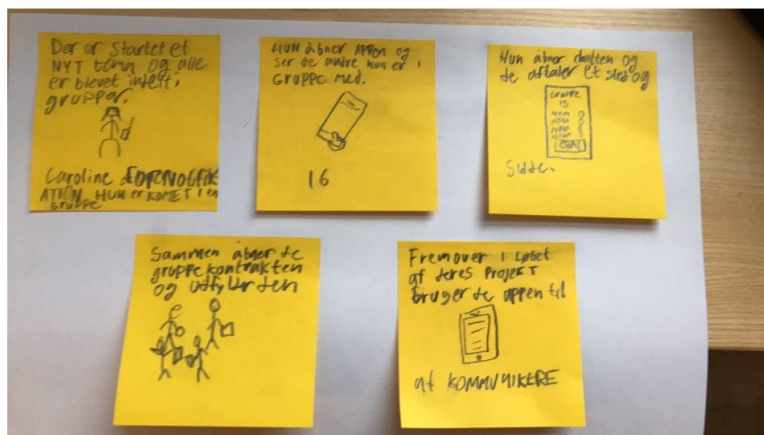 Der er startet et
NYT tema og alle
er blevet indelt i
grupper.
Caroline
ATION. HUN er KOMET i en
gruppe
HUN åbner APPEN og
ser de andre hun er i
GRUPPE med.
16
Hun åbner chatten og
de aftaler et sted og
GRUPPE
15
NAVN
NAVN
NAVN
NAVN
CHAT
Sidde.
Sammen åbner de
gruppekontrakten
og udfylder den
Fremover i Løbet
af deres PROJEKT
bruger de appen til
at KOMMUNIKERE